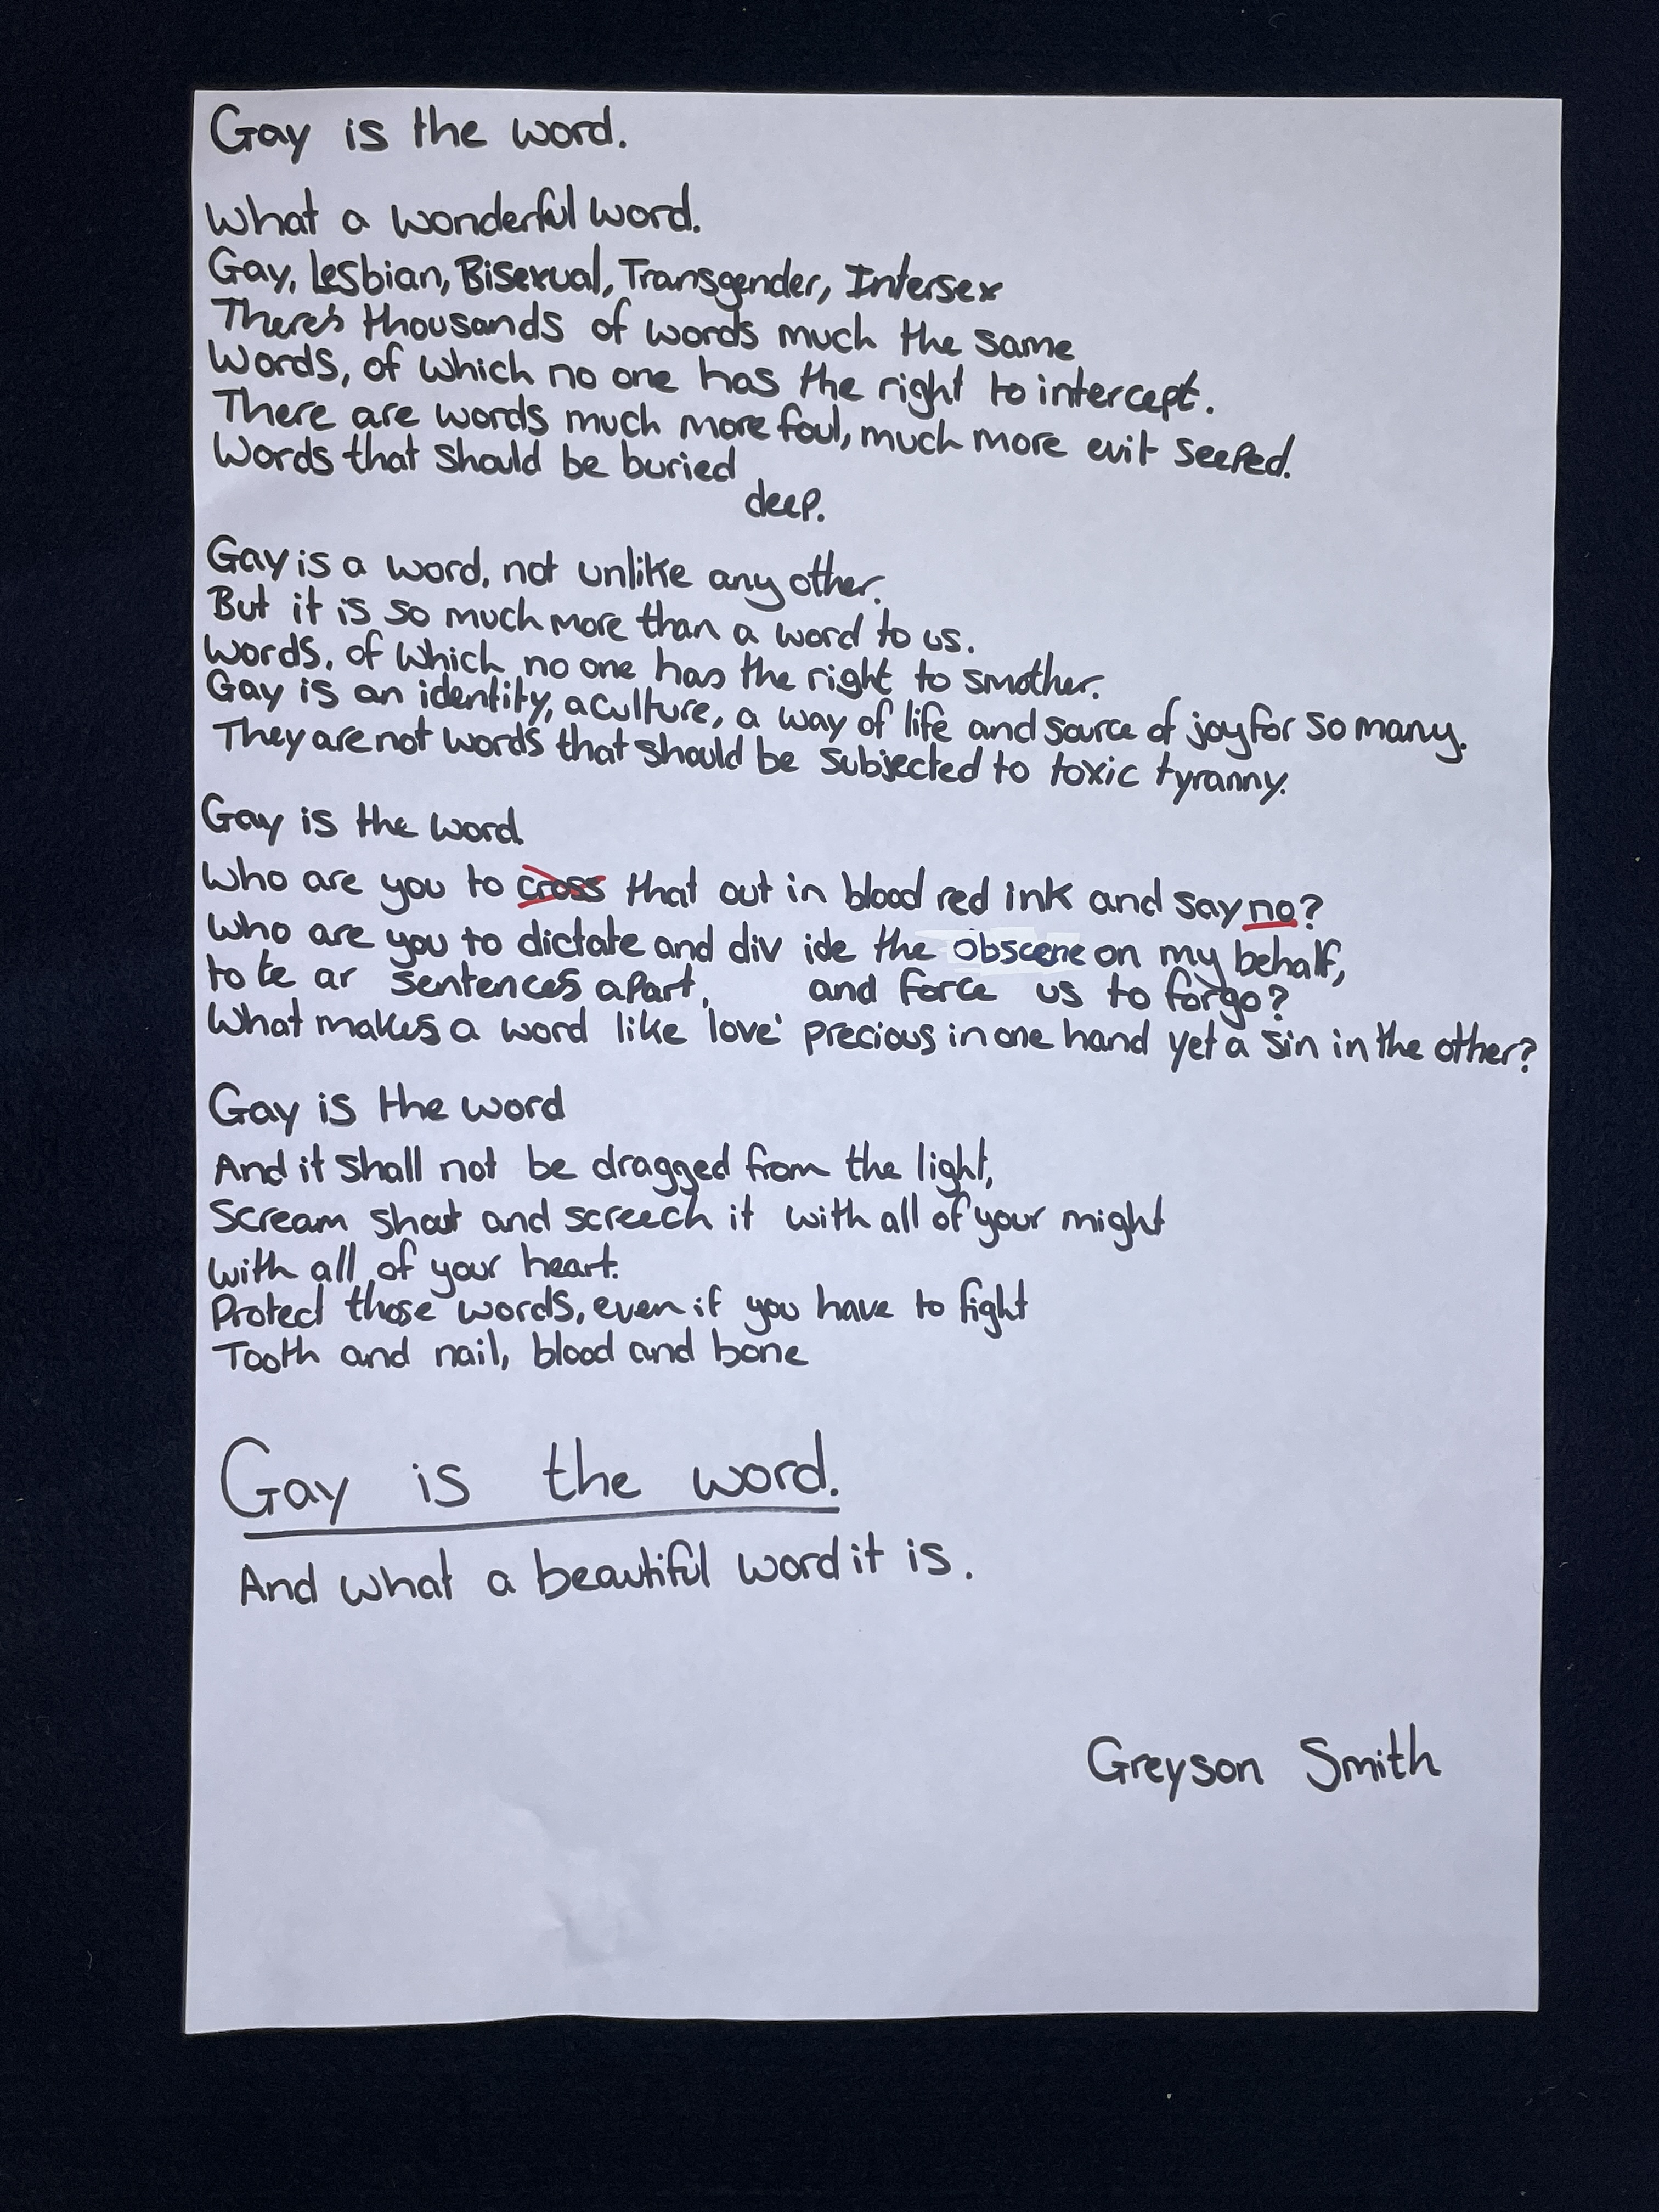 Gay is the word.
What a wonderful word.
Gay, Lesbian, Bisexual, Transgender, Intersex
There's thousands of words much the same
Words, of which no one has the right to intercept.
There are words much more foul, much more evil seeped.
Words that should be buried
deep.
Gay is a word, not unlike any other.
But it is so much more than a word to us.
Words, of which no one has the right to smother.
Gay is an identity, a culture, a way of life and source of joy for so many.
They are not words that should be subjected to toxic tyranny.
Gay is the word.
Who are you to cross that out in blood red ink and say no?
Who are you to dictate and div ide the obscene on my behalf,
to te ar sentences apart, and force us to forgo?
What makes a word like 'love' precious in one hand yet a sin in the other?
Gay is the word
And it shall not be dragged from the light,
Scream shout and screech it with all of your might
with all of your heart.
Protect those words, even if you have to fight
Tooth and nail, blood and bone
Gay is the word.
And what a beautiful word it is.
Greyson Smith